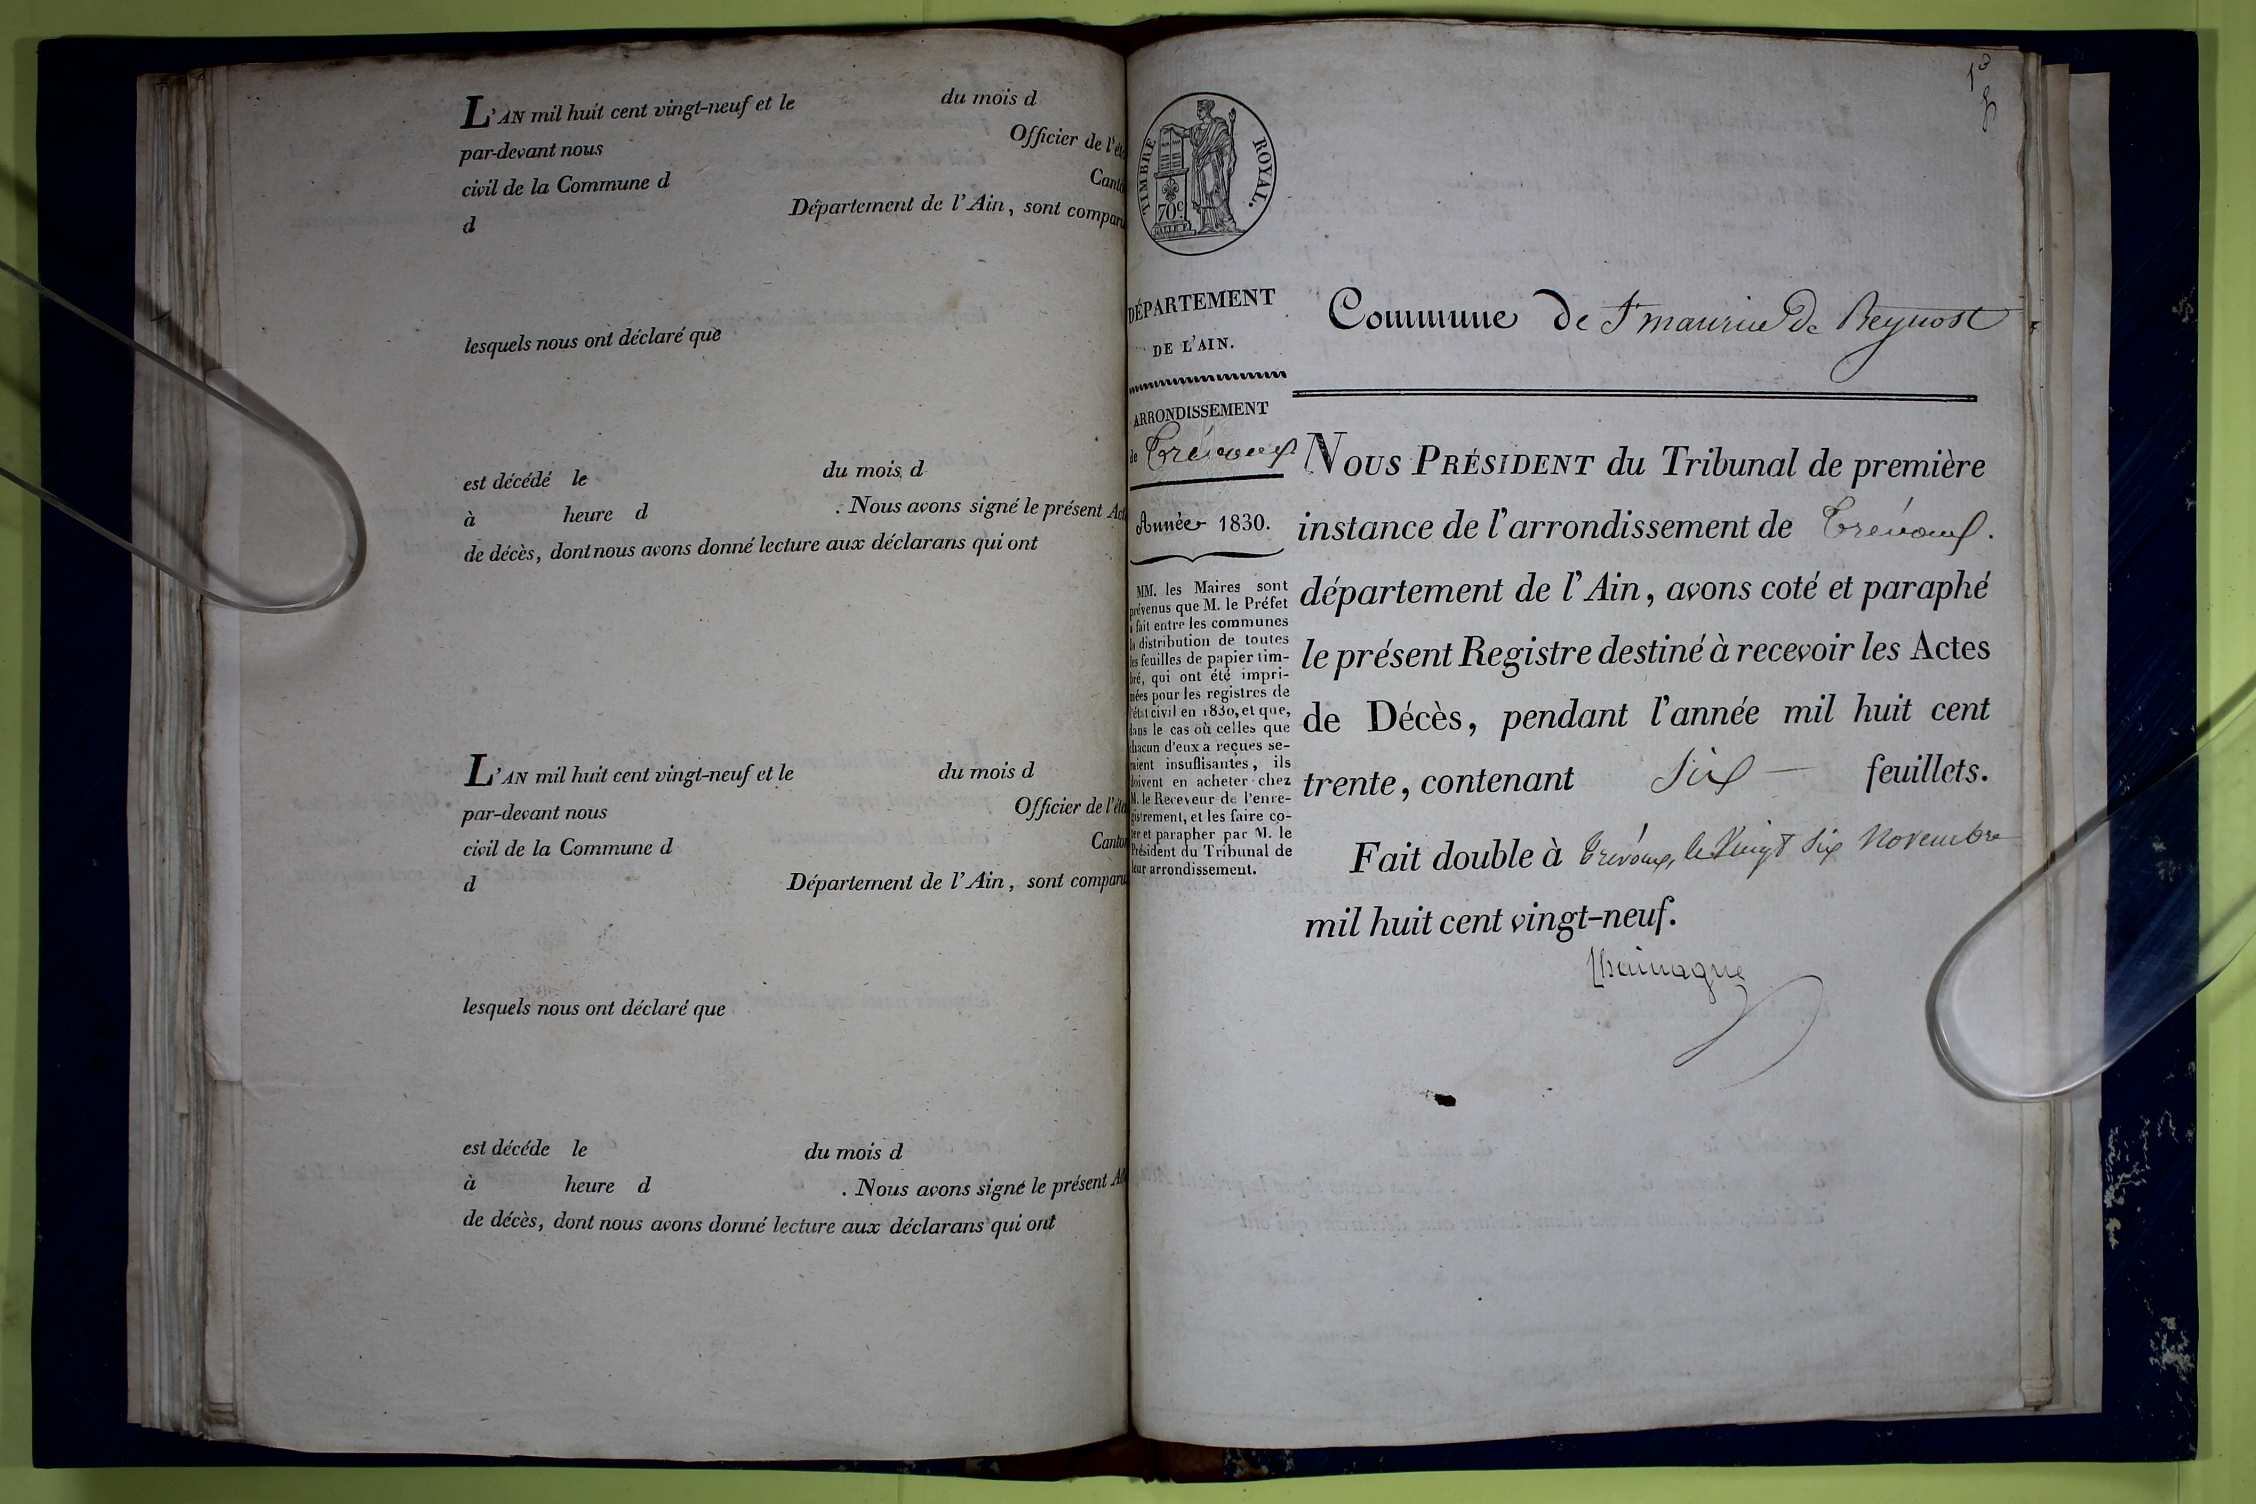 L'AN mil huit cent vingt-neuf et le du mois d
par-devant nous Officier de l'éta
civil de la Commune d Canto
d Département de l'Ain, sont comparu
lesquels nous ont déclaré que
est décédé le du mois d
à heure d . Nous avons signé le présent Act
de décès, dont nous avons donné lecture aux déclarans qui ont
L'AN mil huit cent vingt-neuf et le du mois d
par-devant nous Officier de l'éta
civil de la Commune d Canton
d Département de l'Ain, sont comparu
lesquels nous ont déclaré que
est décéde le du mois d
à heure d . Nous avons signé le présent Act
de décès, dont nous avons donné lecture aux déclarans qui ont
TIMBRE ROYAL.
70 c
DÉPARTEMENT
DE L'AIN.
ARRONDISSEMENT
de Trévoux
Année 1830.
MM. les Maires sont
prévenus que M. le Préfet
a fait entre les communes
la distribution de toutes
les feuilles de papier tim-
bré, qui ont été impri-
mées pour les registres de
l'état civil en 1830, et que,
dans le cas où celles que
chacun d'eux a reçues se-
raient insuffisantes, ils
doivent en acheter chez
M. le Receveur de l'enre-
gistrement, et les faire co-
ter et parapher par M. le
Président du Tribunal de
leur arrondissement.
Commune de St maurice de Beynost
NOUS PRÉSIDENT du Tribunal de première
instance de l'arrondissement de Trévoux.
département de l'Ain, avons coté et paraphé
le présent Registre destiné à recevoir les Actes
de Décès, pendant l'année mil huit cent
trente, contenant six — feuillets.
Fait double à Trévoux, le Vingt six Novembre
mil huit cent vingt-neuf.